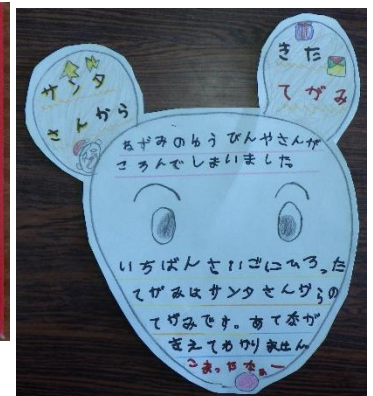 サンタ
さんから
きた
てがみ
ねずみのゆうびんやさんが
ころんでしまいました
いちばんさいごにひろった
てがみはサンタさんからの
てがみです。あてなが
きえてわかりません
こまったなぁー